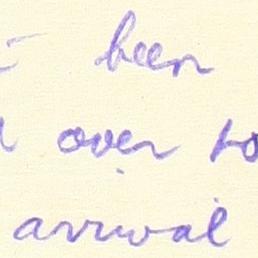 been
over to
arrival